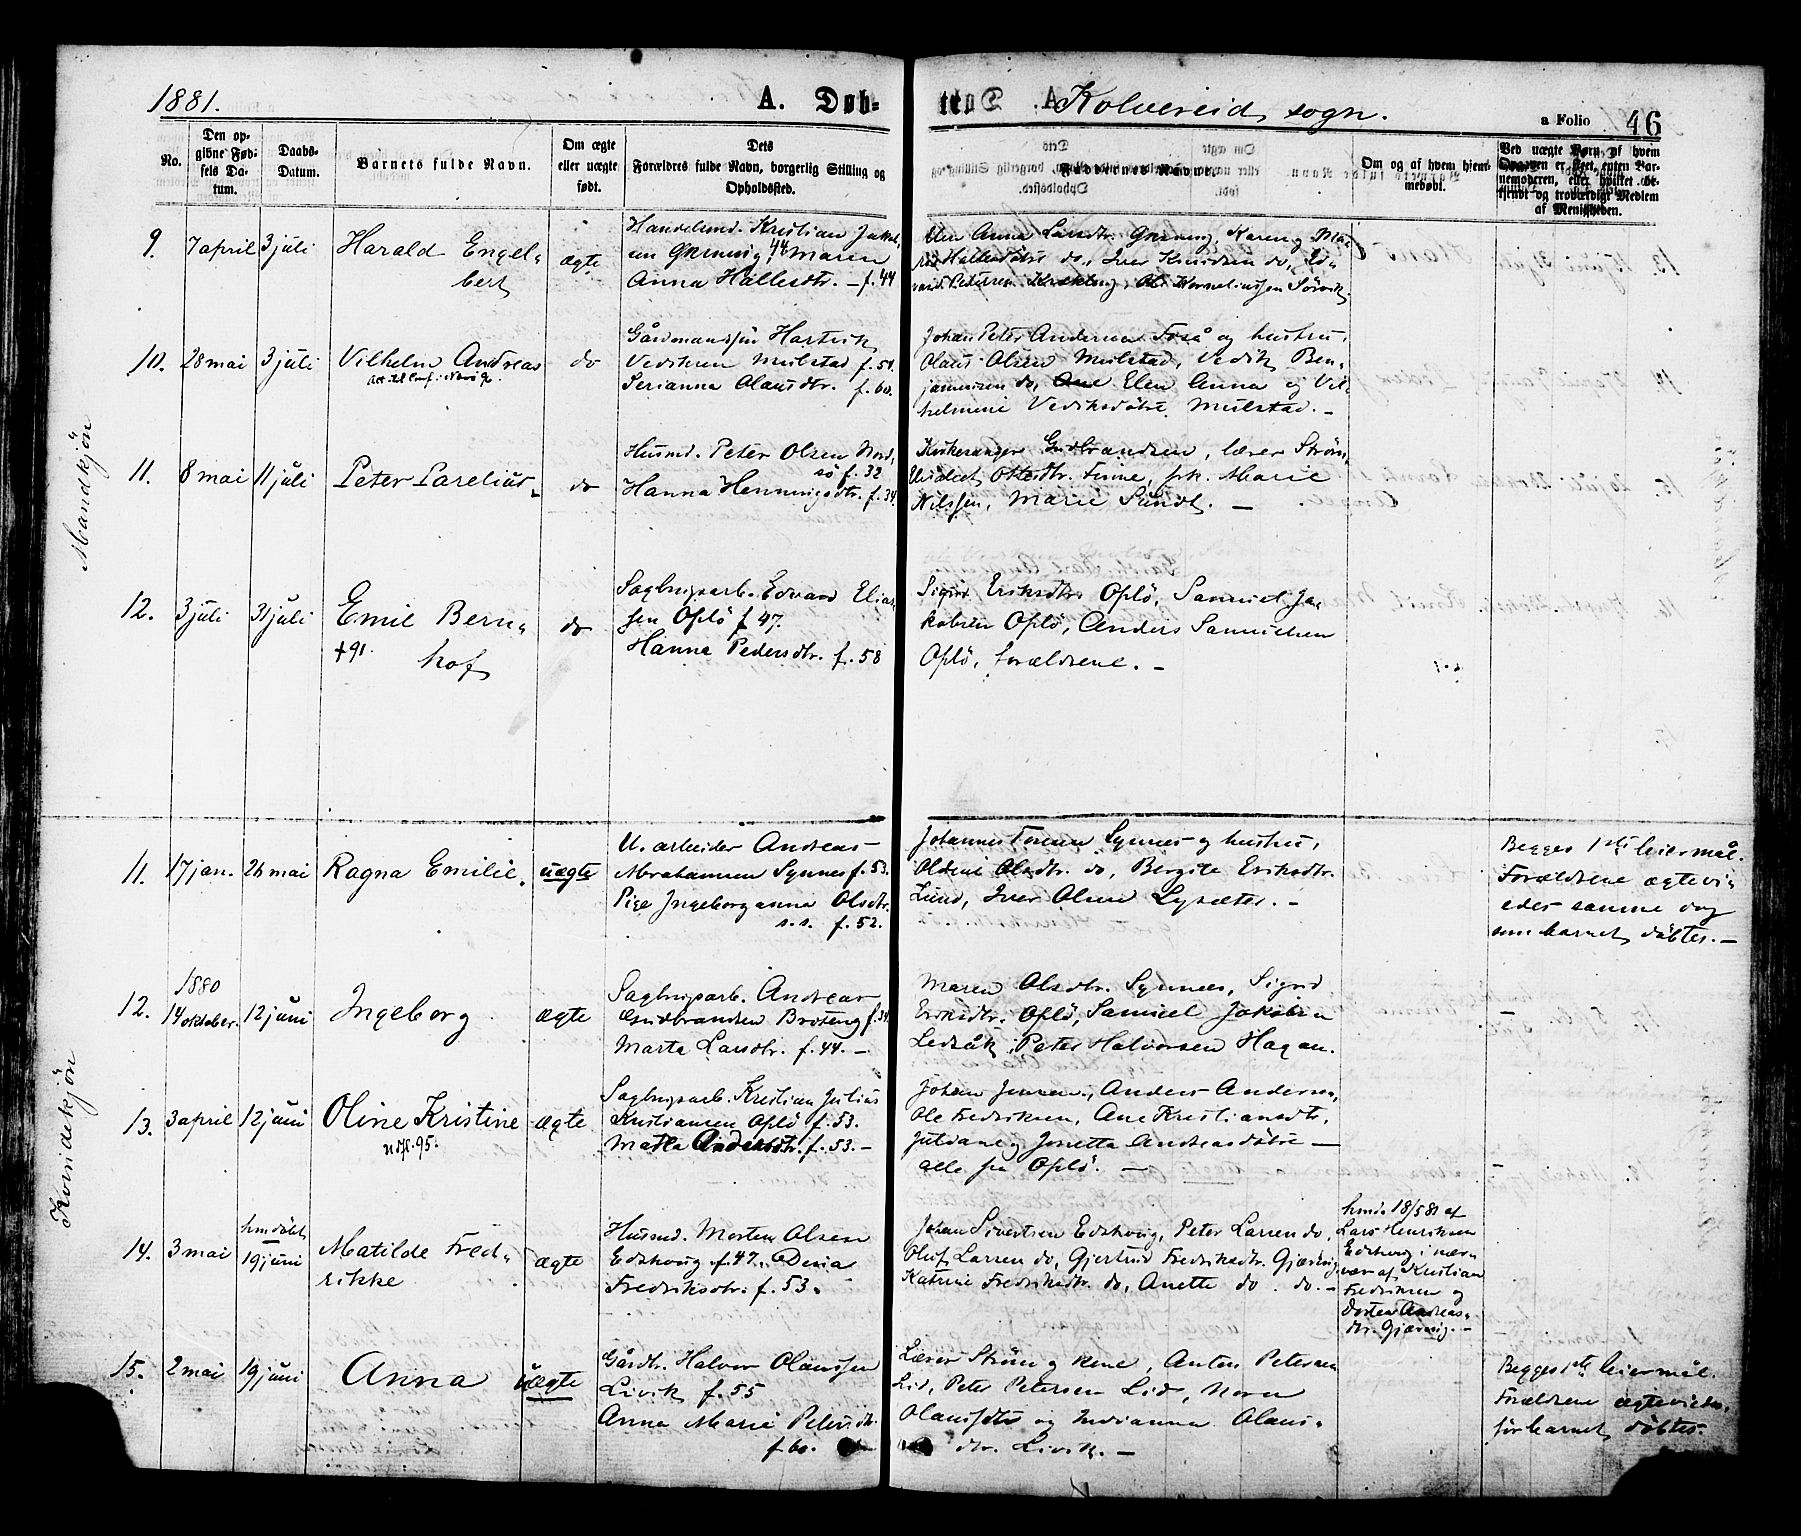 1881.
A. Døb-
Kolvereid sogn.
a Folio 46
No.
Den op-
givne Fød-
sels Da-
tum.
Daabs-
Datum.
Barnets fulde Navn.
Om ægte
eller uægte
født.
Dets
Forældres fulde Navn, borgerlig Stilling og
Opholdssted.
Fadderes Navne.
Om og af hvem hjem-
medøbt.
Ved uægte Børn af hvem
Opgaven er skeet, enten Bar-
nemoderen, eller hvilket be-
kjendt og troværdigt Medlem
af Menigheden.
Mandkjön
9. 7 april 3 juli Harald Engel-
bert
ægte
Handelsmd. Kristian Jakob
44 Maren
Anna Hallesdtr. – f. 44
Anna Larsdtr. Karen og Ma-
Hallesdøtre do, Iver Knudsen do, Ed-
vard Pedersen Ole Kornelinssen Sörvik
10. 28 mai 3 juli Vilhelm Andreas
do
Gårdmandssön Hartvik
Vediksen Muslstad f. 51.
Serianna Olausdtr. f. 60.
Johan Peter Andersen Foså og hustru,
Olaus Olsen Muslstad, Vedik Ben-
jaminsen do, Elen Anna og Vil-
helmine Vediksdøtre Muslstad. –
11. 8 mai 11 juli Peter Parelius –
do
Husmd. Peter Olsen Nord-
sö f. 32
Hanna Henningsdtr. f. 34.
Kirkesanger Gudbrandsen, lærer Ström,
Ottesdtr. Finne, frk. Marie
Nilssen, Marie Sundt. –
12. 3 juli 31 juli Emil Bern-
+91. hof
do
Sagbrugsarb. Edvard Elias-
sen Oplö f. 47.
Hanna Pedersdtr. f. 58
Sigrid Eriksdtr. Oplö, Samuel Ja-
kobsen Oplö, Anders Samuelsen
Oplö, forældrene. –
Kvindekjön
11. 17 jan. 26 mai Ragna Emilie.
uægte
U. arbeider Andreas
Abrahamsen Synnes f. 53.
Pige Ingeborganna Olsdtr.
s.s. f. 52.
Johannes Synnes og hustru,
Oldine Olsdtr. do, Bergite Eriksdtr.
Lund, Iver Olsen Lysæter. –
Begges 1ste leiermål.
Forældrene ægtevi-
edes samme dag
som barnet döbtes. –
1880
12. 14 oktober. 12 juni Ingeborg
ægte
Sagbrugsarb. Andreas
Gudbrandsen Broteng f. 39.
Marta Larsdtr. f. 44. –
Maren Olsdtr. Synnes, Sigrid
Eriksdtr. Oplö, Samuel Jakobsen
Ledsåk, Peter Halvorsen Hagan.
13. 3 april 12 juni Oline Kristine
udfl. 95.
ægte
Sagbrugsarb. Kristian Julius
Kristiansen Oplö f. 53.
Marta Andersdtr. f. 53. –
Johan Jensen, Anders Andersen,
Ole Fredriksen, Ane Kristiansdtr.
Julianne og Jonetta Andreasdøtre –
alle fra Oplö. –
hmdöbt
14. 3 mai 19 juni Matilde Fred-
rikke
ægte
Husmd. Morten Olsen
Edshaug f. 47., Dina
Fredriksdtr. f. 53.
Johan Sivertsen Edshaug, Peter Larsen do,
Oluf Larsen do, Gjertrud Fredriksdtr. Gjærvig,
Katrine Fredriksdtr. do, Anette do. do. –
hmd. 18/5 81 af
Lars Henriksen
Edshaug i nær-
vær af Kristian
Fredriksen og
Dorten Andreas-
dtr. Gjærvig. –
15. 2 mai 19 juni Anna
uægte
Gårdbr. Halvor Olaussen
Livik f. 55
Anna Marie Petersdtr.
f. 60.
Lærer Ström og kone, Anton Petersen
Lid, Peter Petersen Lid, Nora
Olausdtr. og Indianna Olaus-
dtr. Livik. –
Begges 1ste leiermål.
Forældrene ægteviedes
för barnet döbtes.